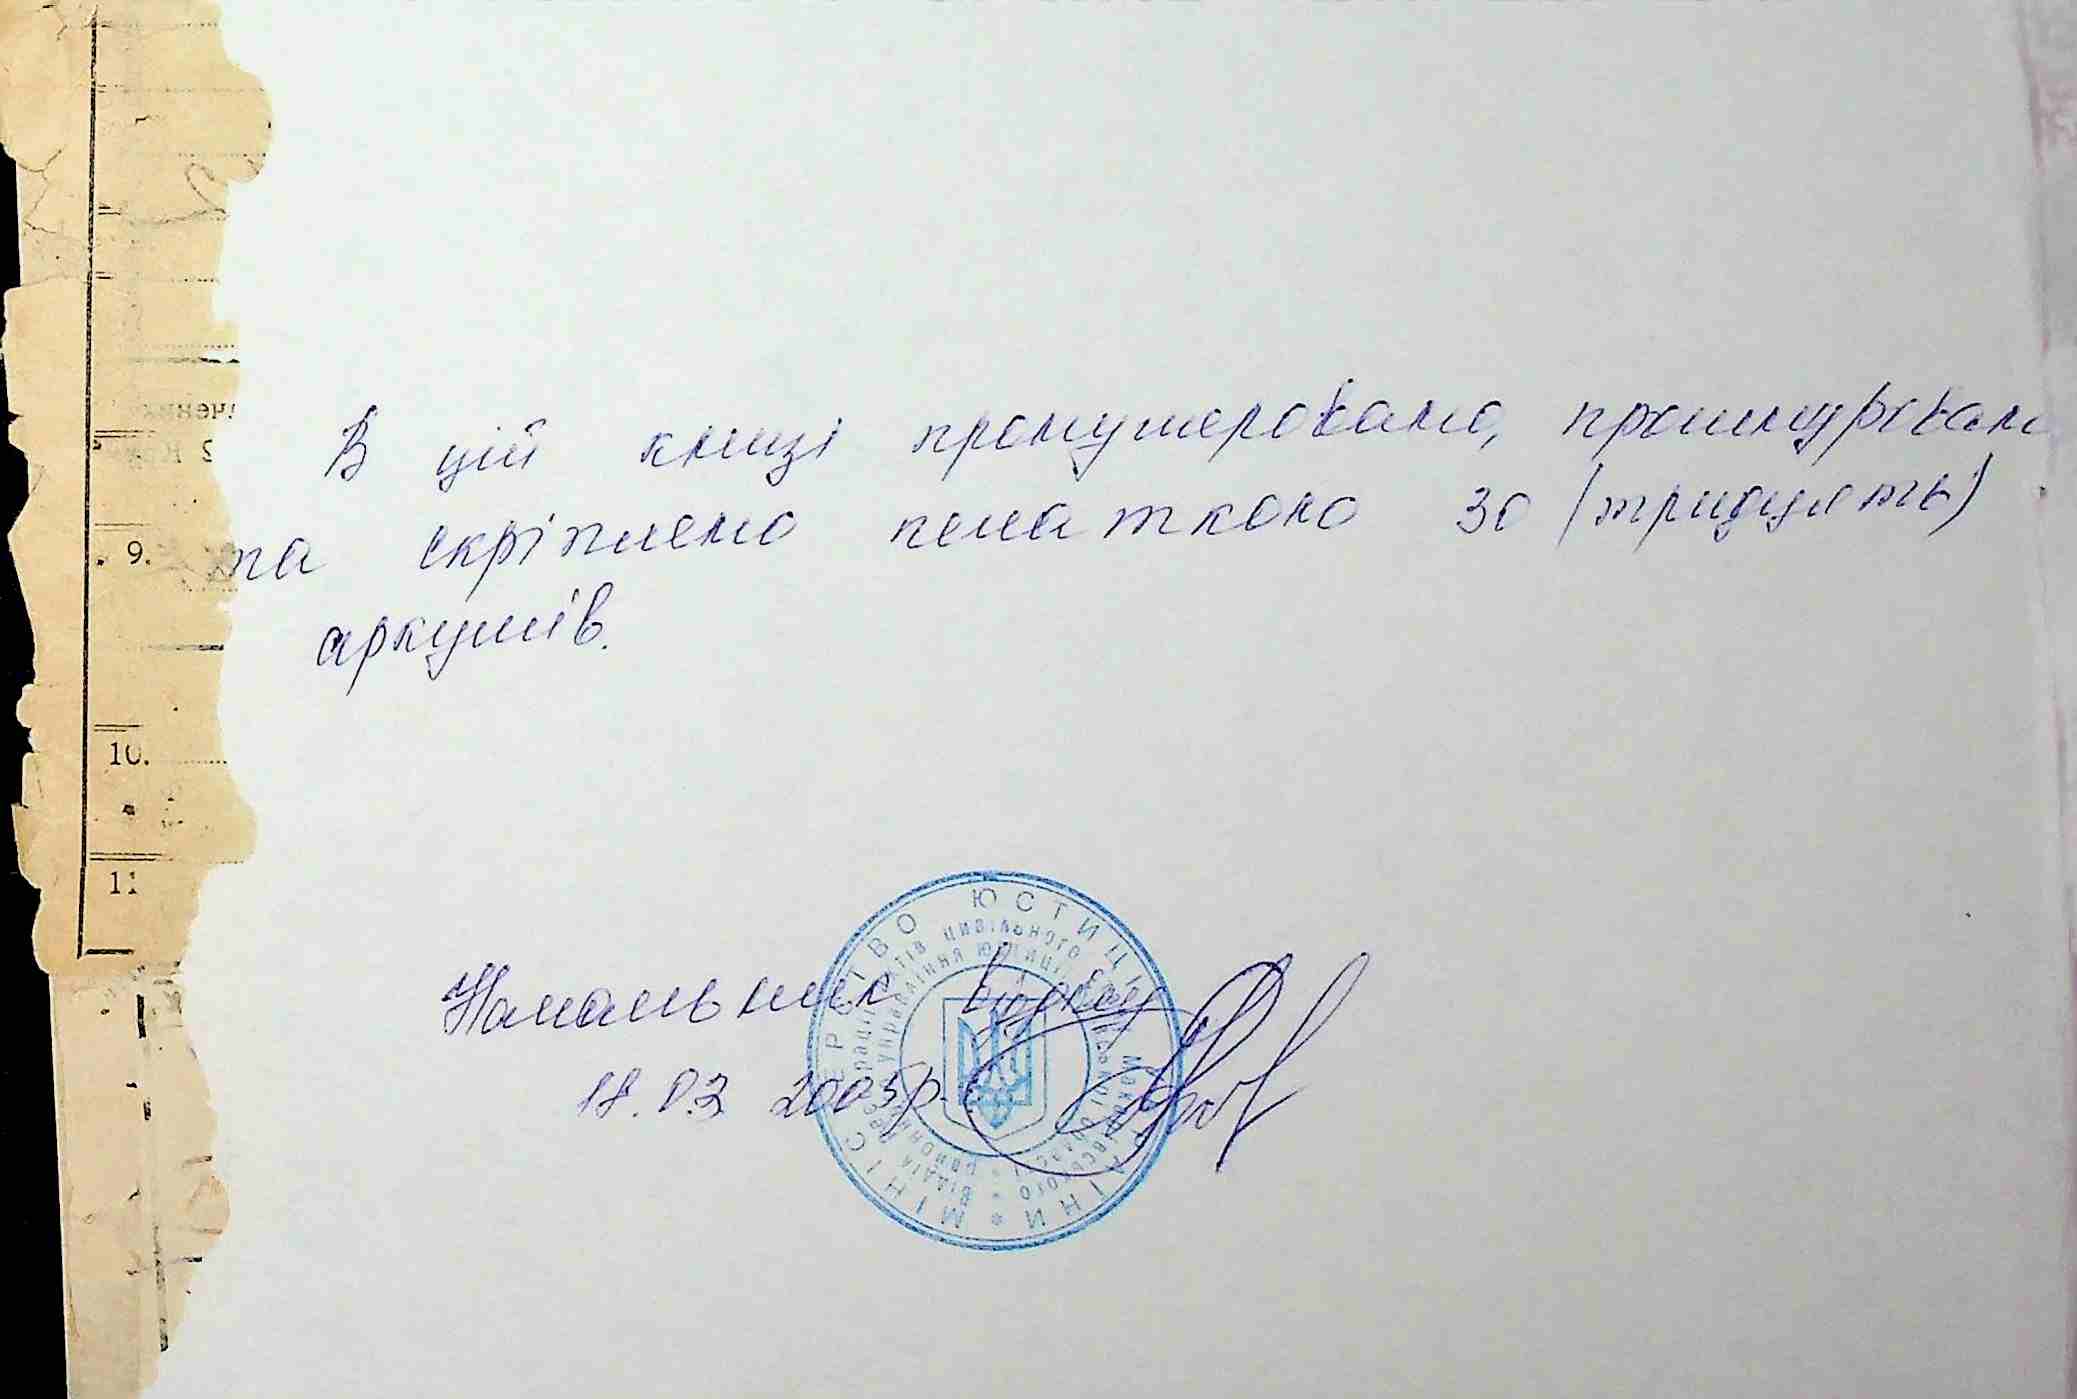 В цій книзі пронумеровано, прошнурован
та скріплено печаткою 30 (тридцять)
аркушів.
Начальник відділу
18.03 2005р.
МІНІСТЕРСТВО ЮСТИЦІЇ УКРАЇНИ *
Відділ реєстрації актів цивільного
управління юстиції
9.
10.
11